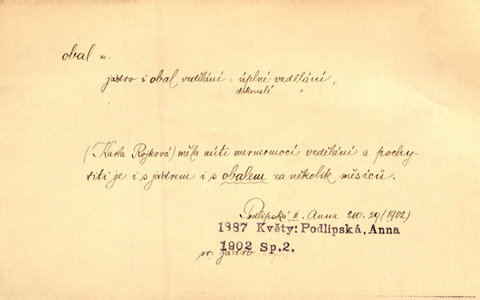 obal m.
jádro i obal vzdělání = úplné vzdělání,
dokonalé "
(Karla Rojková) měla míti mermomocí vzdělání a pochy-
titi je i s jádrem i s obalem za několik měsíců.
Podlipská II. Anna 210.29 (1902)
1887 Květy: Podlipská, Anna
1902 Sp.2.
sr. jádro